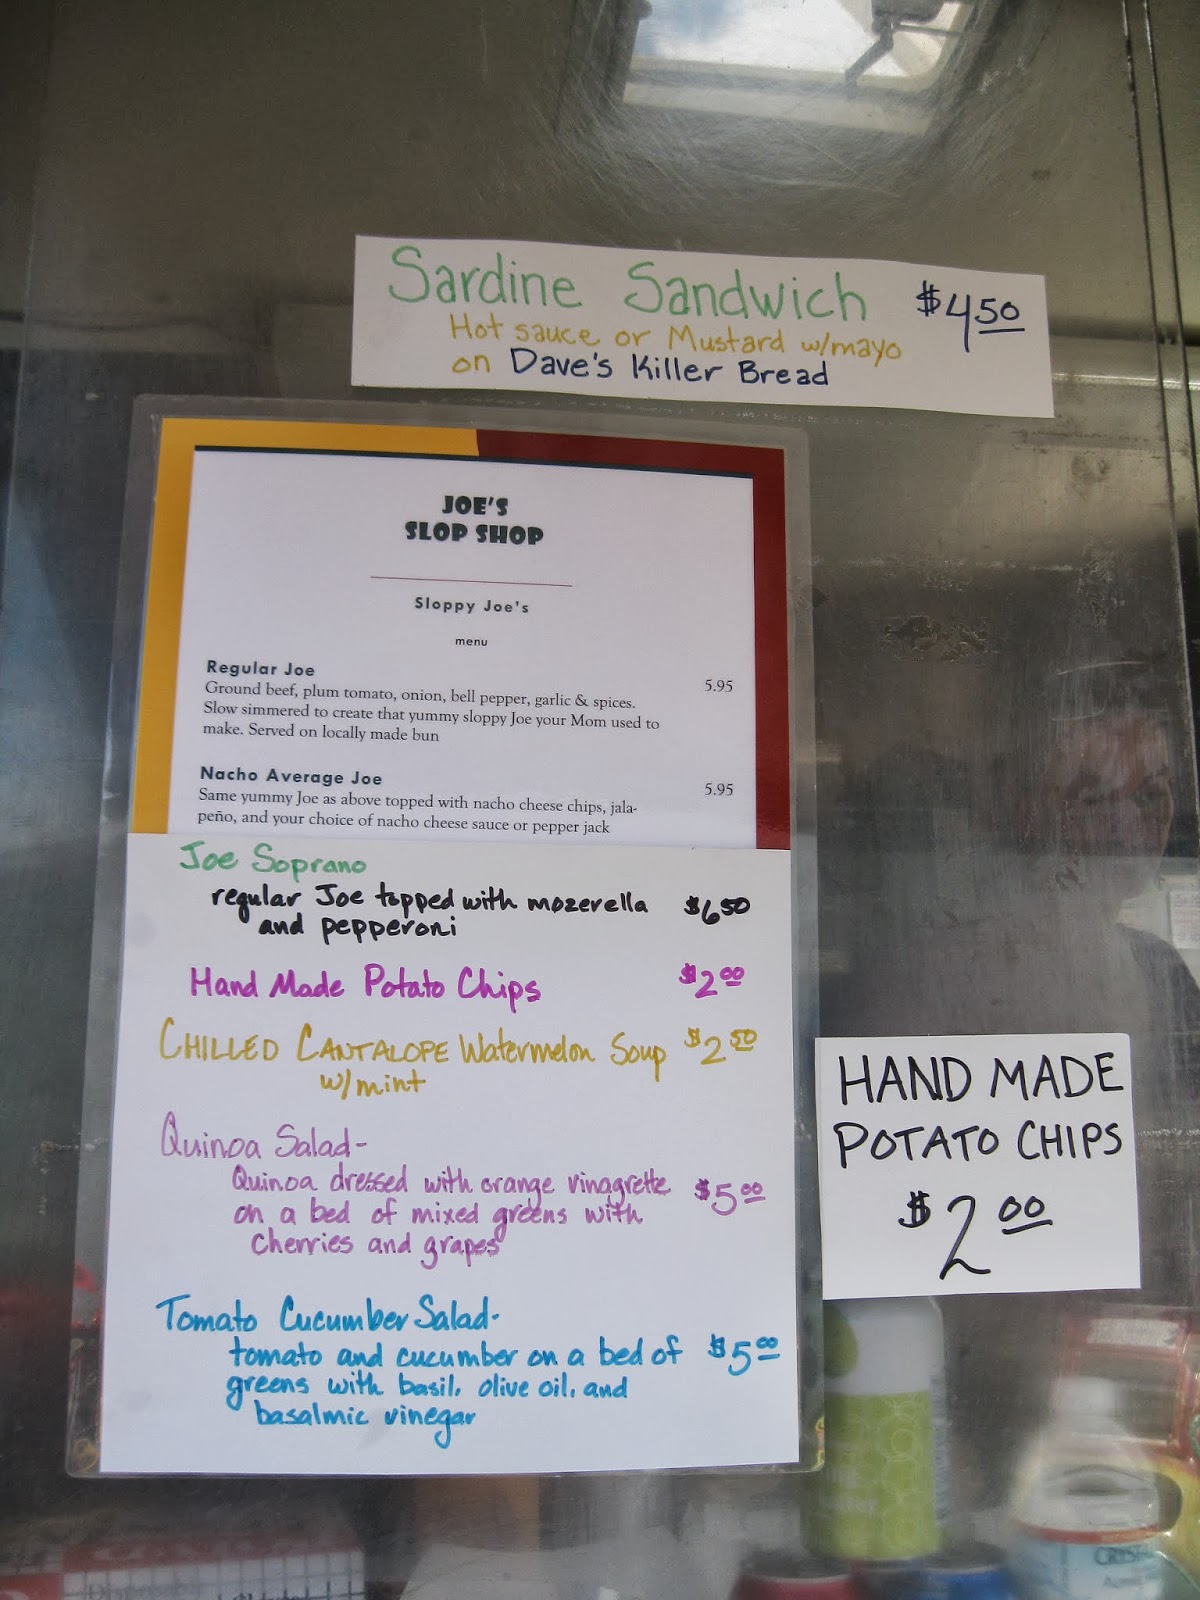 Sardine Sandwich $4.50
Hot sauce or Mustard w/mayo
on Dave's Killer Bread
JOE'S
SLOP SHOP
Sloppy Joe's
menu
Regular Joe 5.95
Ground beef, plum tomato, onion, bell pepper, garlic & spices.
Slow simmered to create that yummy sloppy Joe your Mom used to
make. Served on locally made bun
Nacho Average Joe 5.95
Same yummy Joe as above topped with nacho cheese chips, jala-
peño, and your choice of nacho cheese sauce or pepper jack
Joe Soprano
regular Joe topped with mozerella $6.50
and pepperoni
Hand Made Potato Chips $2.00
CHILLED CANTALOPE Watermelon Soup $2.50
w/mint
Quinoa Salad-
Quinoa dressed with orange vinagrette $5.00
on a bed of mixed greens with
cherries and grapes
Tomato Cucumber Salad-
tomato and cucumber on a bed of $5.00
greens with basil, olive oil, and
basalmic vinegar
HAND MADE
POTATO CHIPS
$2.00